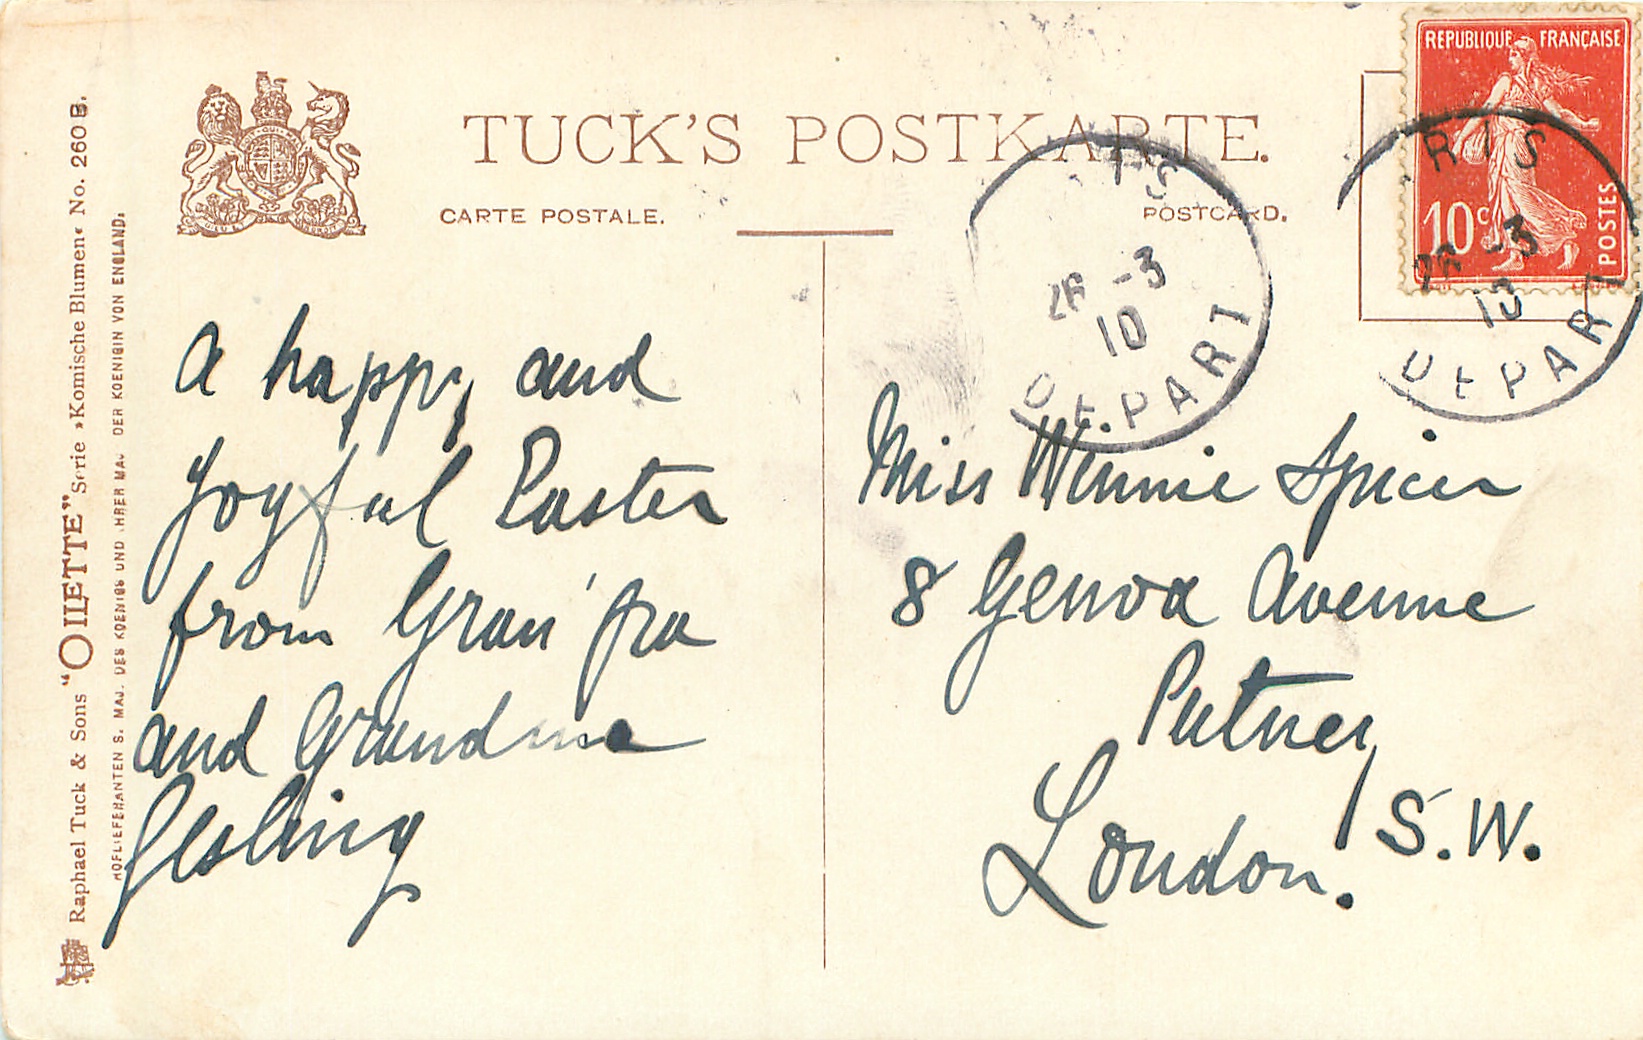 TUCK'S POSTKARTE.
CARTE POSTALE.
POSTCARD.
REPUBLIQUE FRANÇAISE
10c
POSTES
RIS
26 -3
10
DEPART
IS
26 -3
10
DEPART
A happy and
Joyful Easter
from Gran'pa
and Grandma
Gesling
Miss Winnie Spicer
8 Genoa Avenue
Putney
S.W.
London.
Raphael Tuck & Sons "OILETTE" Serie »Komische Blumen« No. 260 B.
HOFLIEFERANTEN S. MAJ. DES KOENIGS UND IHRER MAJ. DER KOENIGIN VON ENGLAND.